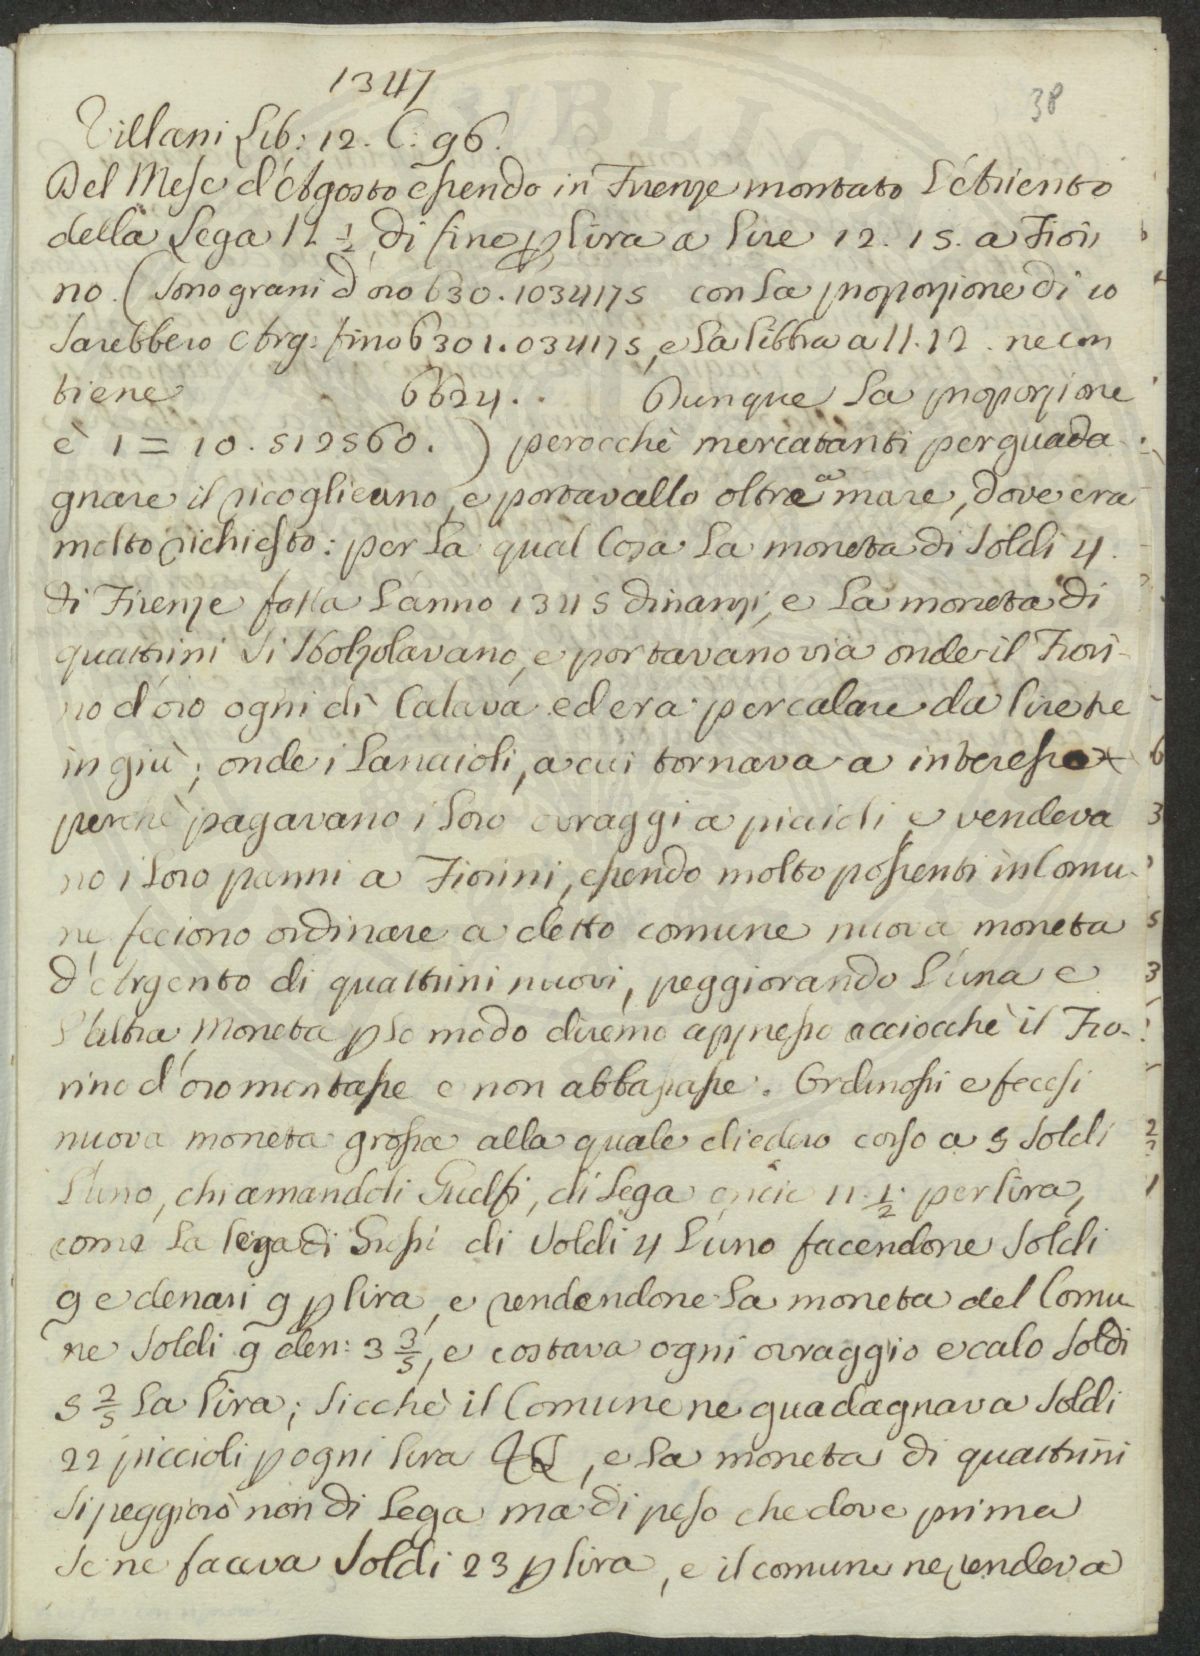 1347
38
Villani Lib: 12. C: 96.
Del Mese d'Agosto essendo in Firenze montato L'Ariento
della Lega 11 1/2 di fine p lira a lire 12. 15. a Fiori
no. (Sono grani d'oro 630.1034175 con la proporzione di 10
sarebbero Arg: fino 6301.034175, e la libbra a 11.12. ne con
tiene 6624.. Dunque la proporzione
è 1 = 10.512560.) perocchè mercatanti per guada
gnare il ricoglieano, e portavallo oltre a mare, dove era
molto richiesto: per la qual Cosa la moneta di Soldi 4.
di Firenze fatta l'anno 1345 dinanzi, e la moneta di
quattrini si sbolzolavano, e portavano via onde il Fiori-
no d'oro ogni dì Calava ed era per calare da lire tre
in giù; onde i Lanaioli, a cui tornava a interesse
perchè pagavano i loro ovraggi a piccioli e vendeva
no i loro panni a Fiorini, essendo molto possenti in Comu-
ne, feciono ordinare a detto comune nuova moneta
d'Argento di quattrini nuovi, peggiorando l'una e
l'altra Moneta p lo modo diremo appresso acciocchè il Fio-
rino d'oro montasse e non abbassasse. Ordinossi e fecesi
nuova moneta grossa alla quale diedero corso a 5 Soldi
l'uno, chiamandoli Guelfi, di Lega oncie 11. 1/2. per lira,
come la lega di Grossi di Soldi 4 l'uno facendone Soldi
9 e denari 9 p lira, e rendendone la moneta del Comu-
ne Soldi 9 den: 3 3/5, e costava ogni ovraggio e calo Soldi
5 2/5 la lira; sicchè il Comune ne guadagnava Soldi
22 piccioli p ogni lira, e la moneta di quattrini
si peggiorò non di Lega ma di peso che dove prima
se ne faceva Soldi 23 p lira, e il comune ne rendeva